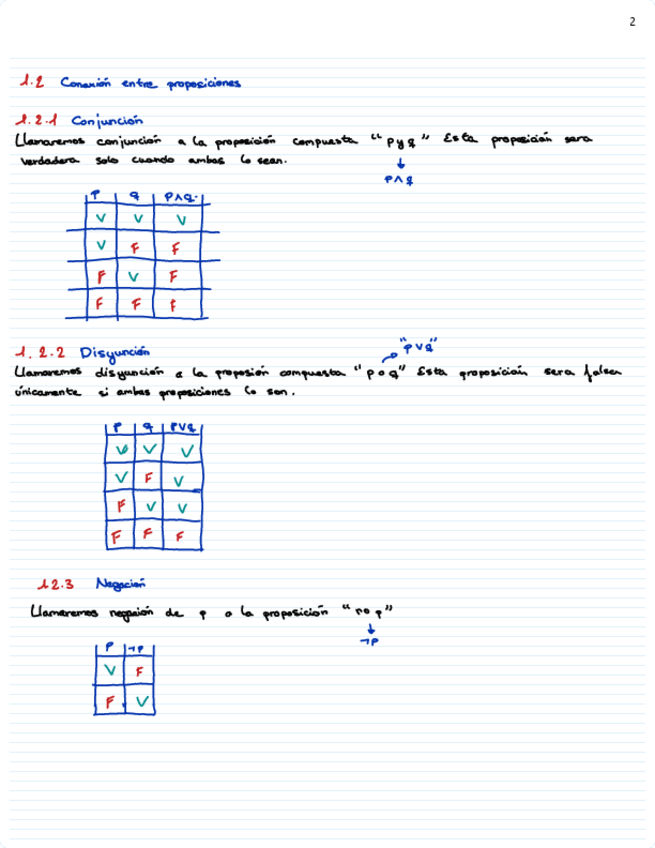 2
1.2 Conexión entre proposiciones
1.2.1 Conjunción
Llamaremos conjunción a la proposición compuesta "p y q" Esta proposición sera
verdadera solo cuando ambas lo sean.
p ∧ q
p q p∧q
V V V
V F F
F V F
F F F
1.2.2 Disyunción
"p v q"
Llamaremos disyunción a la proposión compuesta "p o q" Esta proposición sera falsa
únicamente si ambas proposiciones lo son.
p q p v q
V V V
V F V
F V V
F F F
1.2.3 Negación
Llamaremos negación de p a la proposición "no p"
¬p
p ¬p
V F
F V